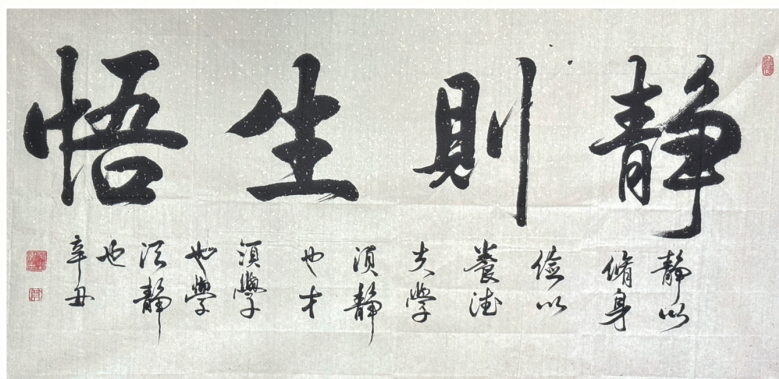 静則生悟
静以
脩身
儉以
養德
夫學
須静
也才
須學
也學
須静
也
辛丑